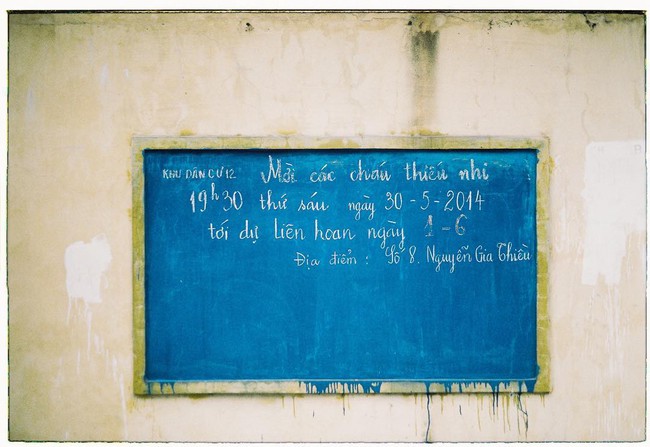 KHU DÂN CƯ 12 Mời các cháu thiếu nhi
19h30 thứ sáu ngày 30-5-2014
tới dự liên hoan ngày 1-6
Địa điểm: Số 8. Nguyễn Gia Thiều